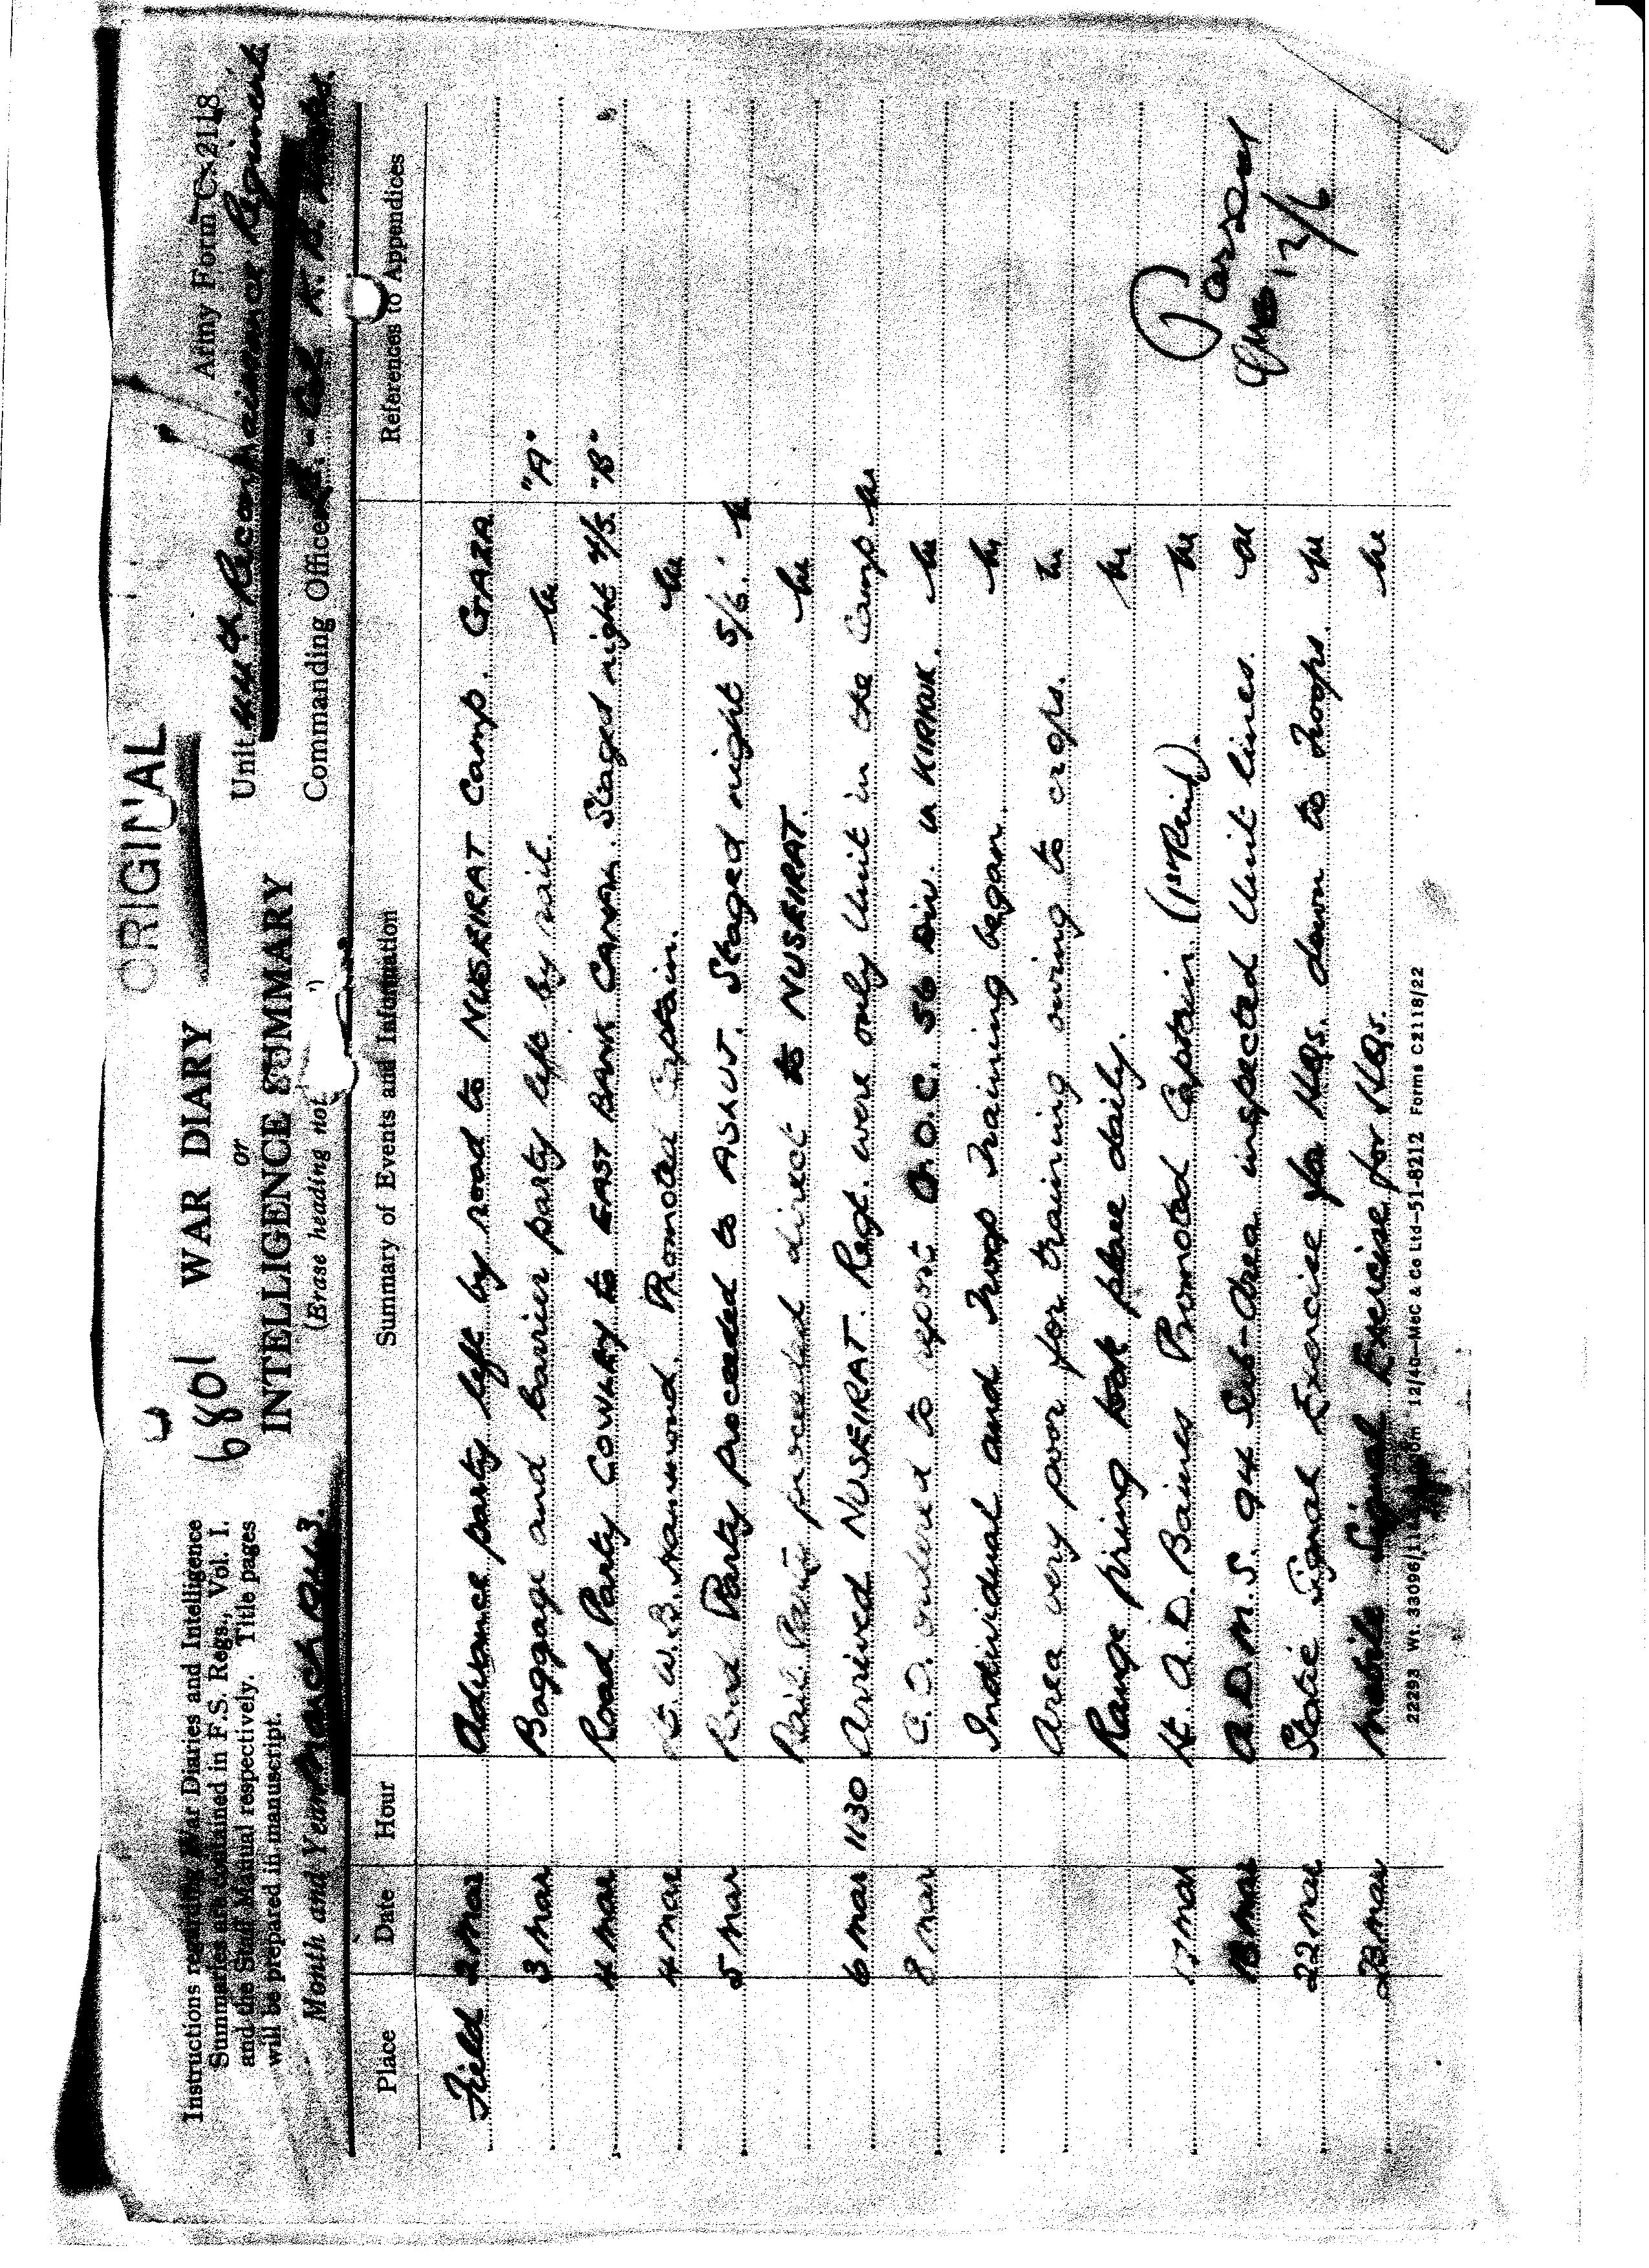 ORIGINAL
Army Form C. 2118
6801
WAR DIARY
or
INTELLIGENCE SUMMARY
(Erase heading not
Instructions regarding War Diaries and Intelligence
Summaries are contained in F.S. Regs., Vol. I.
and the Staff Manual respectively. Title pages
will be prepared in manuscript.
Month and Year March
Unit 44th Reconnaissance Regiment
Commanding Officer
Place Date Hour Summary of Events and Information References to Appendices
Field 2 Mar Advance party left by road to NUSEIRAT Camp. GAZA
3 Mar Baggage and carrier party left by rail. "A"
4 Mar Road Party COWLAY to EAST BANK CANAL. Staged night 4/5. "B"
4 Mar W.B. Hammond. Promoted Captain.
5 Mar Road Party proceeded to ASLUJ. Staged night 5/6.
Rail Party proceeded direct to NUSEIRAT.
6 Mar 1130 Arrived NUSEIRAT. Regt. were only Unit in the Camp
8 Mar C.O. ordered to report G.O.C. 56 Div. in KIRKUK.
Individual and Troop Training began.
Area very poor for training owing to crops.
Range firing took place daily.
17 Mar Lt. A.D. Baines Promoted Captain.
18 Mar A.D.M.S. 94 Sub-Area inspected Unit lines.
22 Mar Static Signal Exercise for HQs. down to Troops.
23 Mar Mobile Signal Exercise for HQs.
Parsed
12/6
22293 Wt. 33096/ 12/40—McC & Co Ltd—51-8212 Forms C2118/22